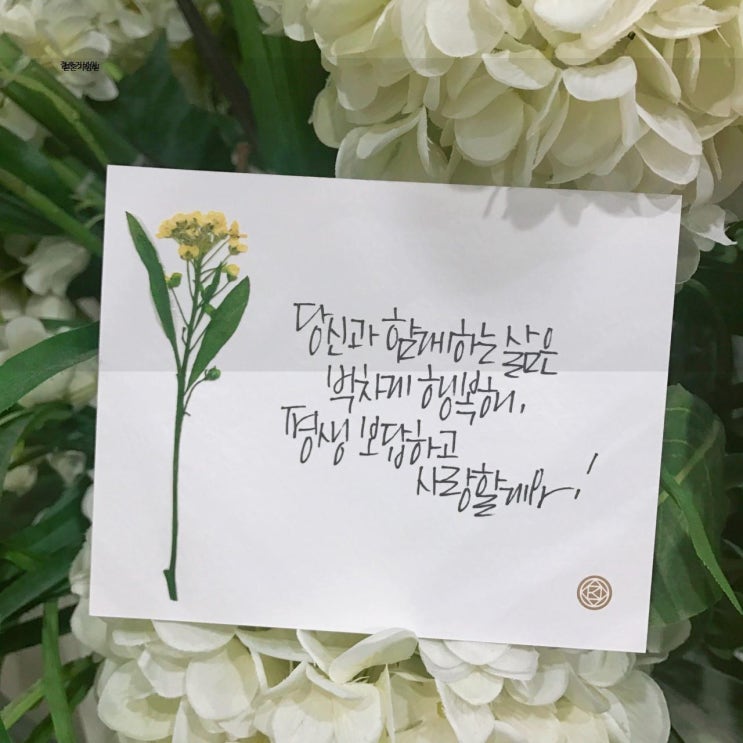 당신과 함께하는 삶은
벅차게 행복해,
평생 보답하고
사랑할게요!